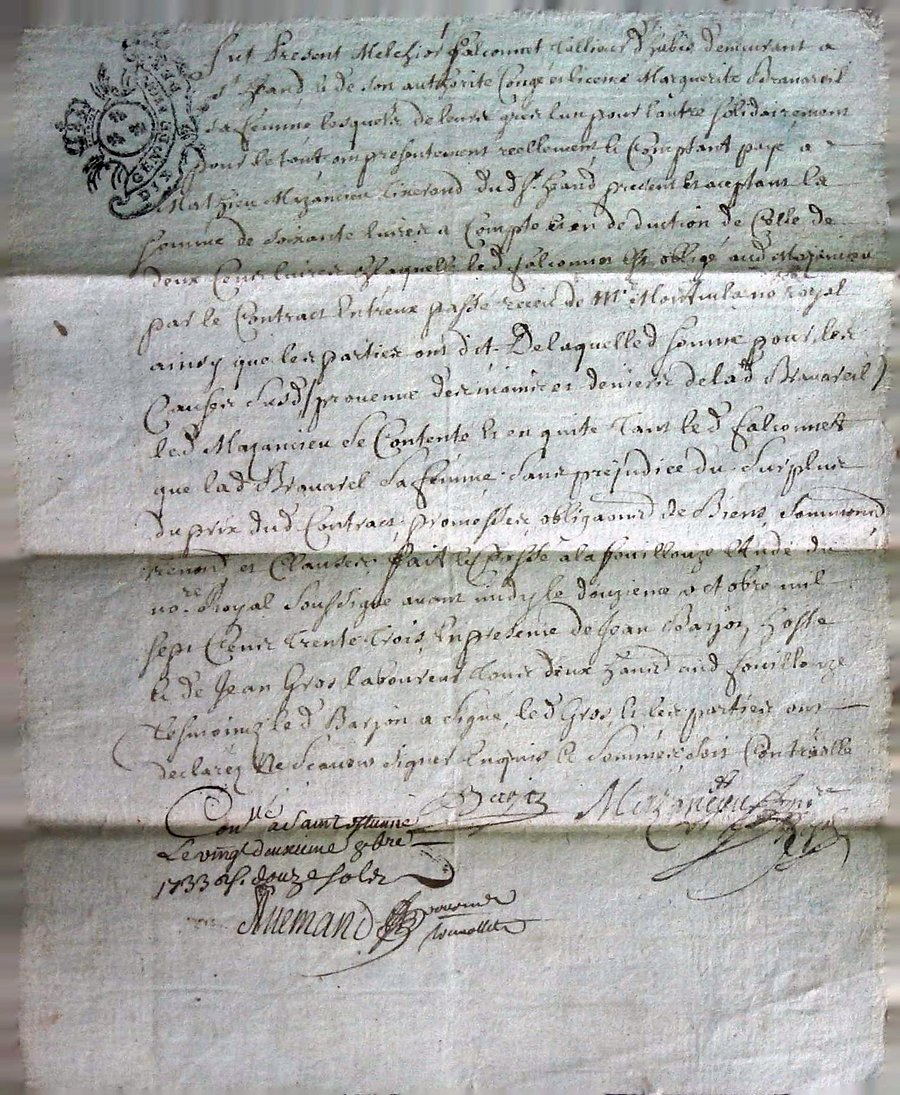 GENER
DIX
fut Present Melchior falconnet Tallieur d'habis demeurant a
St heand & de son authorité Congé et licence Marguerite Bravarel
sa femme lesquels de leurs gres lun pour lautre solidairement
pour le tout ont presentement reellement & Comptant payé a
Mathieu Mazancieu Tixerand dud St heand present et aceptant la
somme de soixante livres a Compte & en deduction de Celle de
deux Cents livres a laquelle led falconnet est obligé aud Mazancieu
par le Contract Entreux passé receu de Mre no re royal
ainsy que les parties ont dit De laquelled somme pour les
Causes susd / provenue des mains et deniers de lad Bravarel /
led Mazancieu se Contente & en quite Tant led falconnet
que lad Bravarel sa femme sans prejudice du surplus
du prix dud Contract promesses obligaons de Biens Sommiond
renond et Clauses, fait & passé a la fouillouze Etude du
nore Royal soussigne avant midy le douzieme octobre mil
sept Cents Trente Trois En presence de Jean Barjon hoste
& de Jean Gros laboureur Tous deux hants aud fouillouze
Tesmoins led Barjon a signé, led Gros & les parties ont
declarez Ne scavoir signer Enquis & Sommés soit Controlle
Barjon
Conlle a Saint Estienne
Le vingt deuxieme 8bre
1733 R. douze sols
Allemand